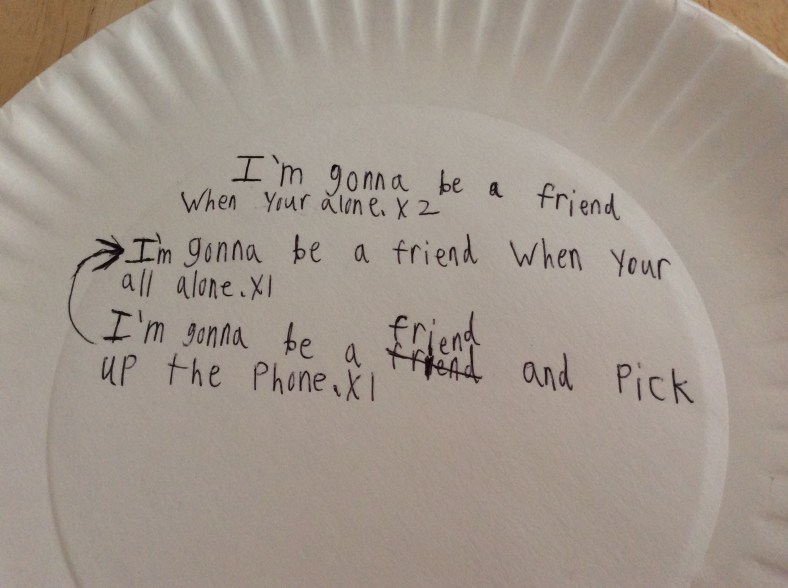 I'm gonna be a friend
When Your alone. X2
I'm gonna be a friend When Your
all alone. X1
I'm gonna be a friend
friend and Pick
UP the Phone. X1